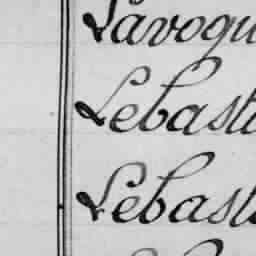 Lavoqu
Lebasti
Lebaste